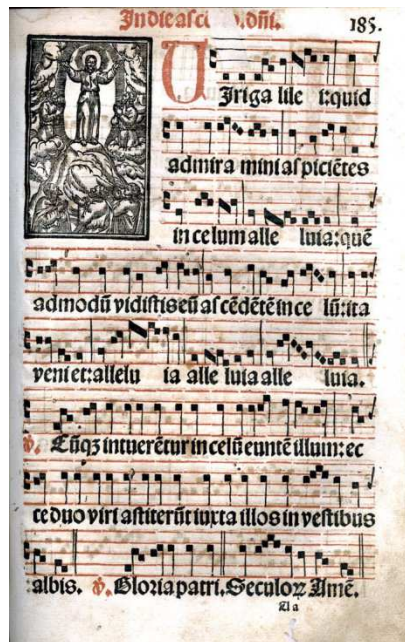 In die ascē. dn̄i. 185.
VIri galile i: quid
admira mini aspiciētes
in celum alle luia: quē
admodū vidistis eū ascēdētē in ce lū: ita
veni et: allelu ia alle luia alle luia.
℣. Cūqꝫ intuerētur in celū euntē illum: ec
ce duo viri astiterūt iuxta illos in vestibus
albis. ℣. Gloria patri. Seculoꝝ Amē.